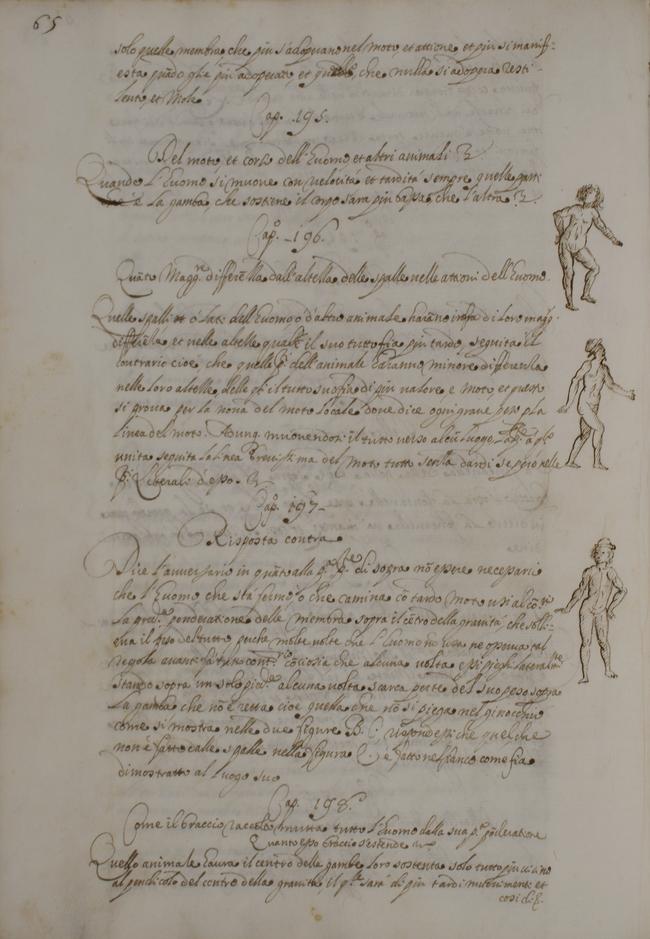 65
solo quelle membra che piu s'adoprano nel moto et attione et piu si manif-
esta quādo che piu adoperate, et quello, che nulla si adoppia resti
lento, et Mole
Cap. .195.
Del moto et corso dell'Huomo et altri animali
Quando l'Huomo si muove con velocità et tardità sempre quelle parti
che è la gamba, che sostiene il corpo sara piu bassa, che l'altra
Capᵒ. .196.
Quāto Magg.ʳᵉ differēza dall'altezza delle spalle nelle attioni dell'Huomo.
Quelle spalle et ò lati dell'Huomo o d'altro animale haranno infra di loro magg.
differēza et nelle altezze quale il suo tutto fia piu tardo, seguita il
contrario cioè che quelle p.ⁱ dell'animale haranno minore differenza
nelle loro altezze, delle q.ˡⁱ il tutto suo fia di piu valore e moto, et questo
si prova per la nona del moto locale dove dice ogni grave pesa p la
linea del moto. Adunq. muovendosi il tutto verso alcū luogo
unita seguita la linea Brevissima del Moto tutto senza dar di se peso nelle
p.ⁱ Laterali d'esso.
Capᵒ. 197
Risposta contra
Dice l'avversario in quāto alla p.ᵃ p.ᵗᵉ di sopra nō essere necessario
che l'Huomo che sta fermo, o che camina cō tardo moto usi al cōti
la pred.ᵃ ponderatione delle membra sopra il cētro della gravità che soste
eva il peso del tutto, perche molte volte che l'Huomo nō usa ne osserva tal
regola avanti fa tutto cont.ʳⁱᵒ cōciosia che alcuna volta esso si piega lateralm.ᵗᵉ
stando sopra un solo pie, alcuna volta scarca parte del suo peso sopra
la gamba che nō è retta cioè quella che nō si piega nel ginocchio
come si mostra nelle due figure B. C. Rispondesi che quel che
non è fatto dalle spalle nella figura C. è fatto nel fianco come fia
dimostratto al luogo suo
Cap. 198.
Come il braccio raccolto muta tutto l'Huomo dalla sua p.ᵃ pōderatione
Quanto esso braccio s'estende
Quello animale haura il centro delle gambe loro sostenta solo tutto piu vicino
al pendicolo del centro della gravità, il q.ˡᵉ sarà di piu tardi movimenti et
cosi di E.